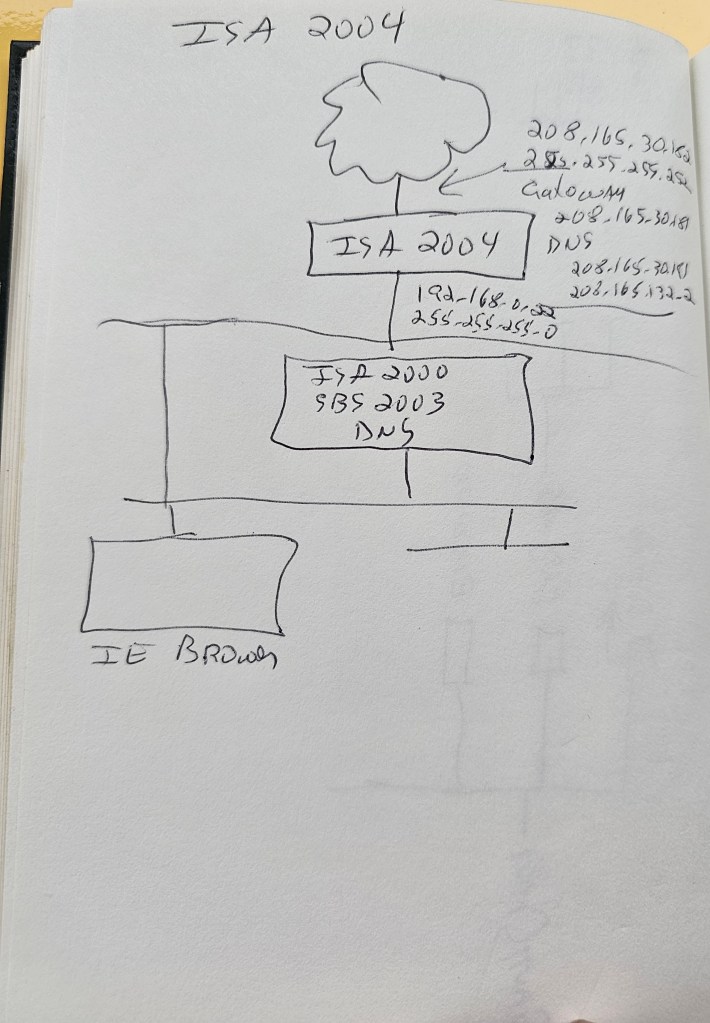 ISA 2004
208.165.30.182
255.255.255.252
Gateway
208.165.30.181
DNS
208.165.30.181
208.165.132.2
ISA 2004
192.168.0.22
255.255.255.0
ISA 2000
SBS 2003
DNS
IE Browser